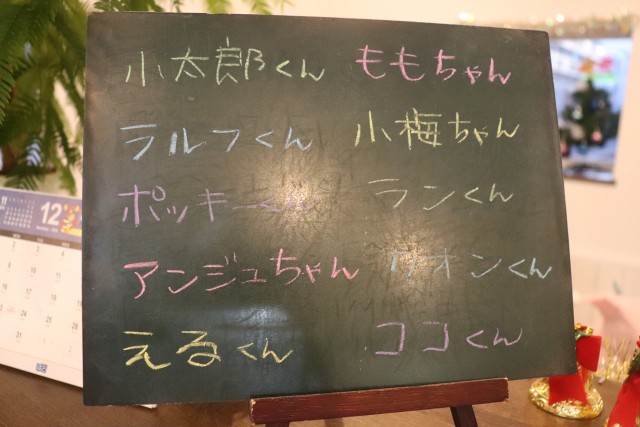 小太郎くん ももちゃん
ラルフくん 小梅ちゃん
ポッキーくん ランくん
アンジュちゃん クオンくん
えるくん ココくん
11
12